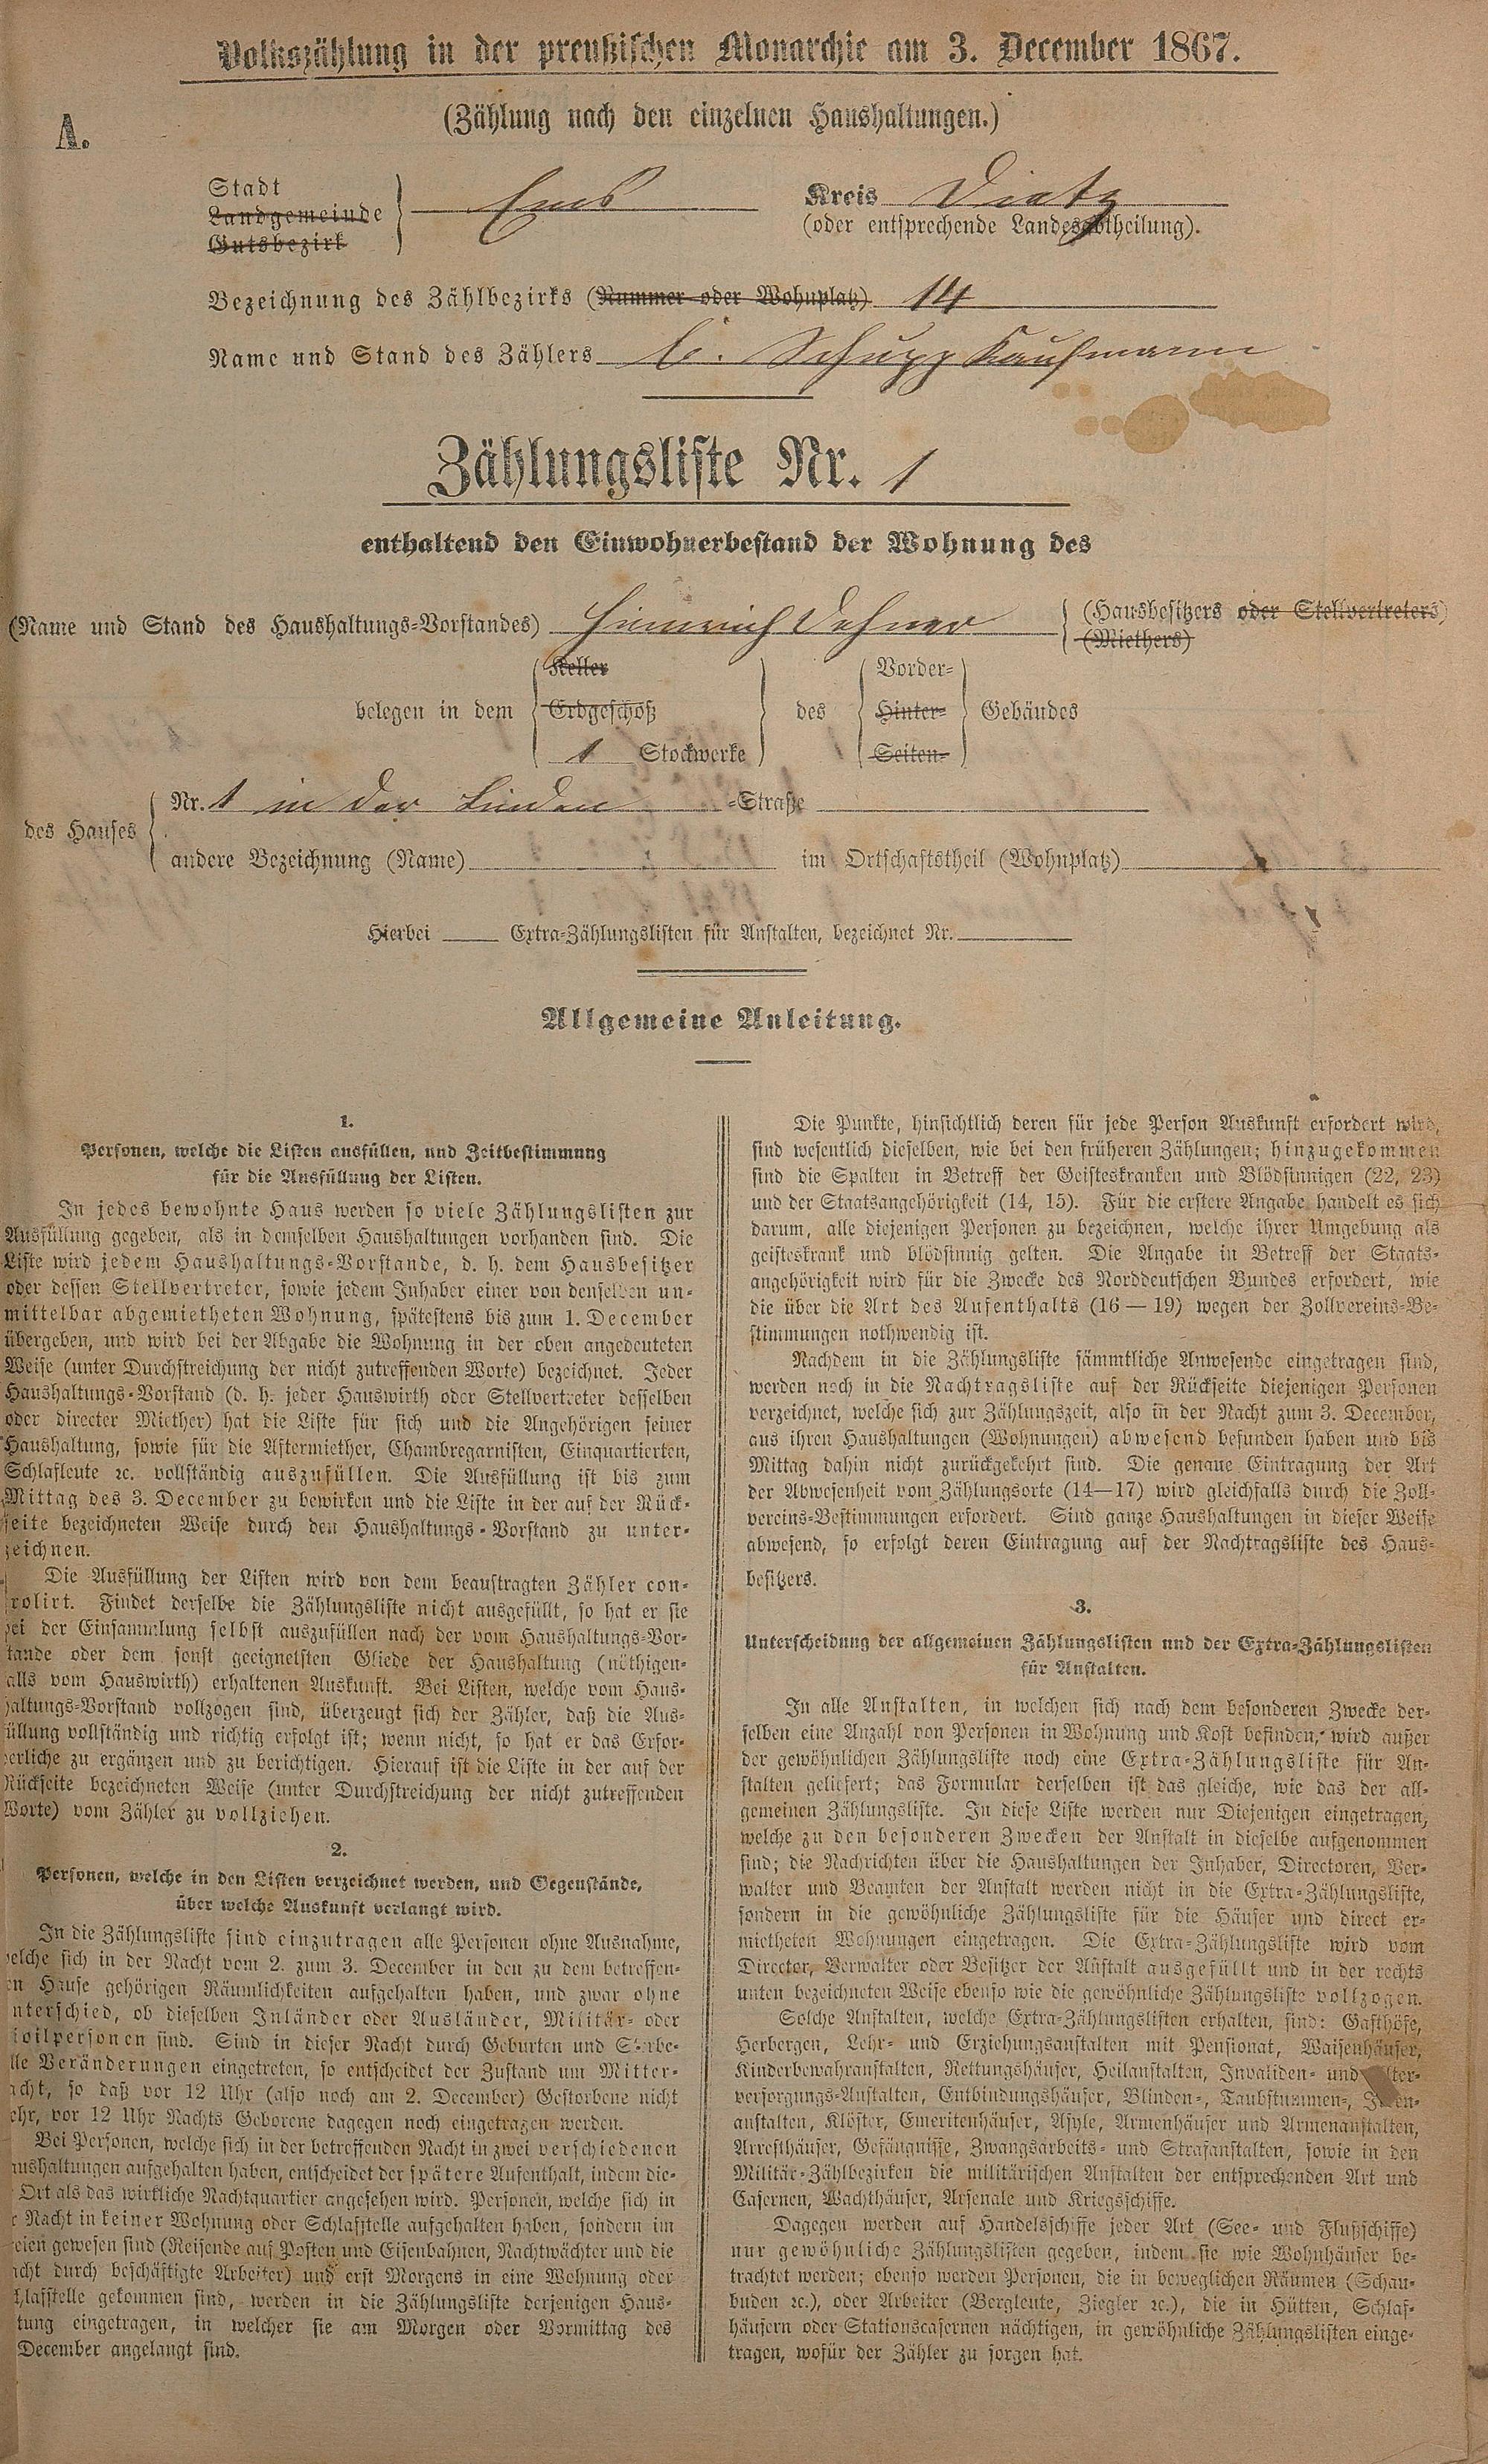 Volkszählung in der preußischen Monarchie am 3. December 1867.
(Zählung nach den einzelnen Haushaltungen.)
A.
Stadt
Landgemeinde
Gutsbezirk
Ems
Kreis Dietz
(oder entsprechende Landesabtheilung).
Bezeichnung des Zählbezirks (Nummer oder Wohnplatz) 14
Name und Stand des Zählers C. Schupp Kaufmann
Zählungsliste Nr. 1
enthaltend den Einwohnerbestand der Wohnung des
(Name und Stand des Haushaltungs-Vorstandes) Heinrich
(Hausbesitzers oder Stellvertreters)
(Miethers)
belegen in dem
Keller
Erdgeschoß
1 Stockwerke
des
Vorder-
Hinter-
Seiten-
Gebäudes
des Hauses
Nr. 1 in der Linden -Straße
andere Bezeichnung (Name) im Ortschaftstheil (Wohnplatz)
Hierbei Extra-Zählungslisten für Anstalten, bezeichnet Nr.
Allgemeine Anleitung.
1.
Personen, welche die Listen ausfüllen, und Zeitbestimmung
für die Ausfüllung der Listen.
In jedes bewohnte Haus werden so viele Zählungslisten zur
Ausfüllung gegeben, als in demselben Haushaltungen vorhanden sind. Die
Liste wird jedem Haushaltungs-Vorstande, d. h. dem Hausbesitzer
oder dessen Stellvertreter, sowie jedem Inhaber einer von denselben un-
mittelbar abgemietheten Wohnung, spätestens bis zum 1. December
übergeben, und wird bei der Abgabe die Wohnung in der oben angedeuteten
Weise (unter Durchstreichung der nicht zutreffenden Worte) bezeichnet. Jeder
Haushaltungs-Vorstand (d. h. jeder Hauswirth oder Stellvertreter desselben
oder directer Miether) hat die Liste für sich und die Angehörigen seiner
Haushaltung, sowie für die Aftermiether, Chambregarnisten, Einquartierten,
Schlafleute ꝛc. vollständig auszufüllen. Die Ausfüllung ist bis zum
Mittag des 3. December zu bewirken und die Liste in der auf der Rück-
seite bezeichneten Weise durch den Haushaltungs-Vorstand zu unter-
zeichnen.
Die Ausfüllung der Listen wird von dem beauftragten Zähler con-
rolirt. Findet derselbe die Zählungsliste nicht ausgefüllt, so hat er sie
bei der Einsammlung selbst auszufüllen nach der vom Haushaltungs-Vor-
tande oder dem sonst geeignetsten Gliede der Haushaltung (nöthigen-
alls vom Hauswirth) erhaltenen Auskunft. Bei Listen, welche vom Haus-
haltungs-Vorstand vollzogen sind, überzeugt sich der Zähler, daß die Aus-
üllung vollständig und richtig erfolgt ist; wenn nicht, so hat er das Erfor-
erliche zu ergänzen und zu berichtigen. Hierauf ist die Liste in der auf der
Rückseite bezeichneten Weise (unter Durchstreichung der nicht zutreffenden
Worte) vom Zähler zu vollziehen.
2.
Personen, welche in den Listen verzeichnet werden, und Gegenstände,
über welche Auskunft verlangt wird.
In die Zählungsliste sind einzutragen alle Personen ohne Ausnahme,
welche sich in der Nacht vom 2. zum 3. December in den zu dem betreffen-
en Hause gehörigen Räumlichkeiten aufgehalten haben, und zwar ohne
nterschied, ob dieselben Inländer oder Ausländer, Militär- oder
ivilpersonen sind. Sind in dieser Nacht durch Geburten und Sterbe-
lle Veränderungen eingetreten, so entscheidet der Zustand um Mitter-
acht, so daß vor 12 Uhr (also noch am 2. December) Gestorbene nicht
ehr, vor 12 Uhr Nachts Geborene dagegen noch eingetragen werden.
Bei Personen, welche sich in der betreffenden Nacht in zwei verschiedenen
aushaltungen aufgehalten haben, entscheidet der spätere Aufenthalt, indem die-
Ort als das wirkliche Nachtquartier angesehen wird. Personen, welche sich in
r Nacht in keiner Wohnung oder Schlafstelle aufgehalten haben, sondern im
eien gewesen sind (Reisende auf Posten und Eisenbahnen, Nachtwächter und die
acht durch beschäftigte Arbeiter) und erst Morgens in eine Wohnung oder
hlafstelle gekommen sind, werden in die Zählungsliste derjenigen Haus-
tung eingetragen, in welcher sie am Morgen oder Vormittag des
December angelangt sind.
Die Punkte, hinsichtlich deren für jede Person Auskunft erfordert wird,
sind wesentlich dieselben, wie bei den früheren Zählungen; hinzugekommen
sind die Spalten in Betreff der Geisteskranken und Blödsinnigen (22, 23)
und der Staatsangehörigkeit (14, 15). Für die erstere Angabe handelt es sich
darum, alle diejenigen Personen zu bezeichnen, welche ihrer Umgebung als
geisteskrank und blödsinnig gelten. Die Angabe in Betreff der Staats-
angehörigkeit wird für die Zwecke des Norddeutschen Bundes erfordert, wie
die über die Art des Aufenthalts (16—19) wegen der Zollvereins-Be-
stimmungen nothwendig ist.
Nachdem in die Zählungsliste sämmtliche Anwesende eingetragen sind,
werden noch in die Nachtragsliste auf der Rückseite diejenigen Personen
verzeichnet, welche sich zur Zählungszeit, also in der Nacht zum 3. December,
aus ihren Haushaltungen (Wohnungen) abwesend befunden haben und bis
Mittag dahin nicht zurückgekehrt sind. Die genaue Eintragung der Art
der Abwesenheit vom Zählungsorte (14—17) wird gleichfalls durch die Zoll-
vereins-Bestimmungen erfordert. Sind ganze Haushaltungen in dieser Weise
abwesend, so erfolgt deren Eintragung auf der Nachtragsliste des Haus-
besitzers.
3.
Unterscheidung der allgemeinen Zählungslisten und der Extra-Zählungslisten
für Anstalten.
In alle Anstalten, in welchen sich nach dem besonderen Zwecke der-
selben eine Anzahl von Personen in Wohnung und Kost befinden, wird außer
der gewöhnlichen Zählungsliste noch eine Extra-Zählungsliste für An-
stalten geliefert; das Formular derselben ist das gleiche, wie das der all-
gemeinen Zählungsliste. In diese Liste werden nur Diejenigen eingetragen,
welche zu den besonderen Zwecken der Anstalt in dieselbe aufgenommen
sind; die Nachrichten über die Haushaltungen der Inhaber, Directoren, Ver-
walter und Beamten der Anstalt werden nicht in die Extra-Zählungsliste,
sondern in die gewöhnliche Zählungsliste für die Häuser und direct er-
mietheten Wohnungen eingetragen. Die Extra-Zählungsliste wird vom
Director, Verwalter oder Besitzer der Anstalt ausgefüllt und in der rechts
unten bezeichneten Weise ebenso wie die gewöhnliche Zählungsliste vollzogen.
Solche Anstalten, welche Extra-Zählungslisten erhalten, sind: Gasthöfe,
Herbergen, Lehr- und Erziehungsanstalten mit Pensionat, Waisenhäuser,
Kinderbewahranstalten, Rettungshäuser, Heilanstalten, Invaliden- und
versorgungs-Anstalten, Entbindungshäuser, Blinden-, Taubstummen-,
anstalten, Klöster, Emeritenhäuser, Asyle, Armenhäuser und Armenanstalten,
Arresthäuser, Gefängnisse, Zwangsarbeits- und Strafanstalten, sowie in den
Militär-Zählbezirken die militärischen Anstalten der entsprechenden Art und
Casernen, Wachthäuser, Arsenale und Kriegsschiffe.
Dagegen werden auf Handelsschiffe jeder Art (See- und Flußschiffe)
nur gewöhnliche Zählungslisten gegeben, indem sie wie Wohnhäuser be-
trachtet werden; ebenso werden Personen, die in beweglichen Räumen (Schau-
buden ꝛc.), oder Arbeiter (Bergleute, Ziegler ꝛc.), die in Hütten, Schlaf-
häusern oder Stationscasernen nächtigen, in gewöhnliche Zählungslisten einge-
tragen, wofür der Zähler zu sorgen hat.